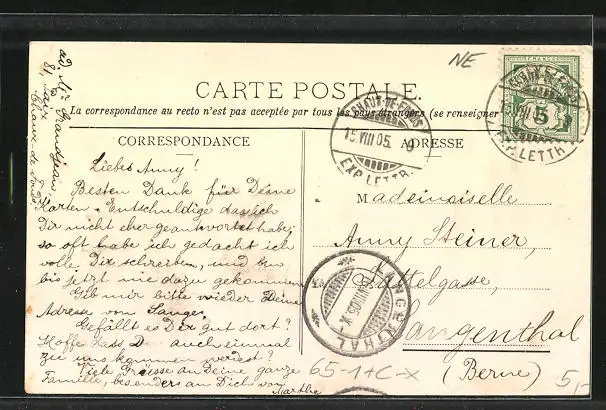 NE
CARTE POSTALE.
La correspondance au recto n'est pas acceptée par tous les pays étrangers (se renseigner
CORRESPONDANCE
ADRESSE
CHAUX-DE-FONDS
15.VIII.05. 9
EXP. LETTR.
FRANCO
5
EXP. LETTR.
Liebes Anny!
Besten Dank für Deine
Karten. Entschuldige dass ich
Dir nicht eher geantwortet habe;
so oft habe ich gedacht ich
wolle Dir schreiben, und bin
bis jetzt nie dazu gekommen
Gib mir bitte wieder Deine
Adresse von
Gefällt es Dir gut dort?
Hoffe dass Du auch einmal
zu uns kommen werdest?
Viele Grüsse an Deine ganze
Familie, besonders an Dich von
Marthe
ad. Mr Grandjean
81, Paix
Chaux-de-Fonds
Mademoiselle
Anny Steiner,
Langenthal
(Berne)
LANGENTHAL
VIII.05.X
65-1+C-X
5,-